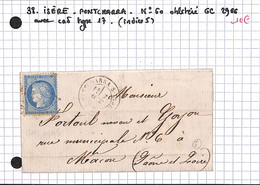 38. ISÈRE. PONTCHARRA. N° 60 oblitéré GC 2906
avec càd type 17. (Indice 5)
10€
Monsieur
Portoul neveu et
rue municipale N° 6 à
Macon (Saône et Loire)